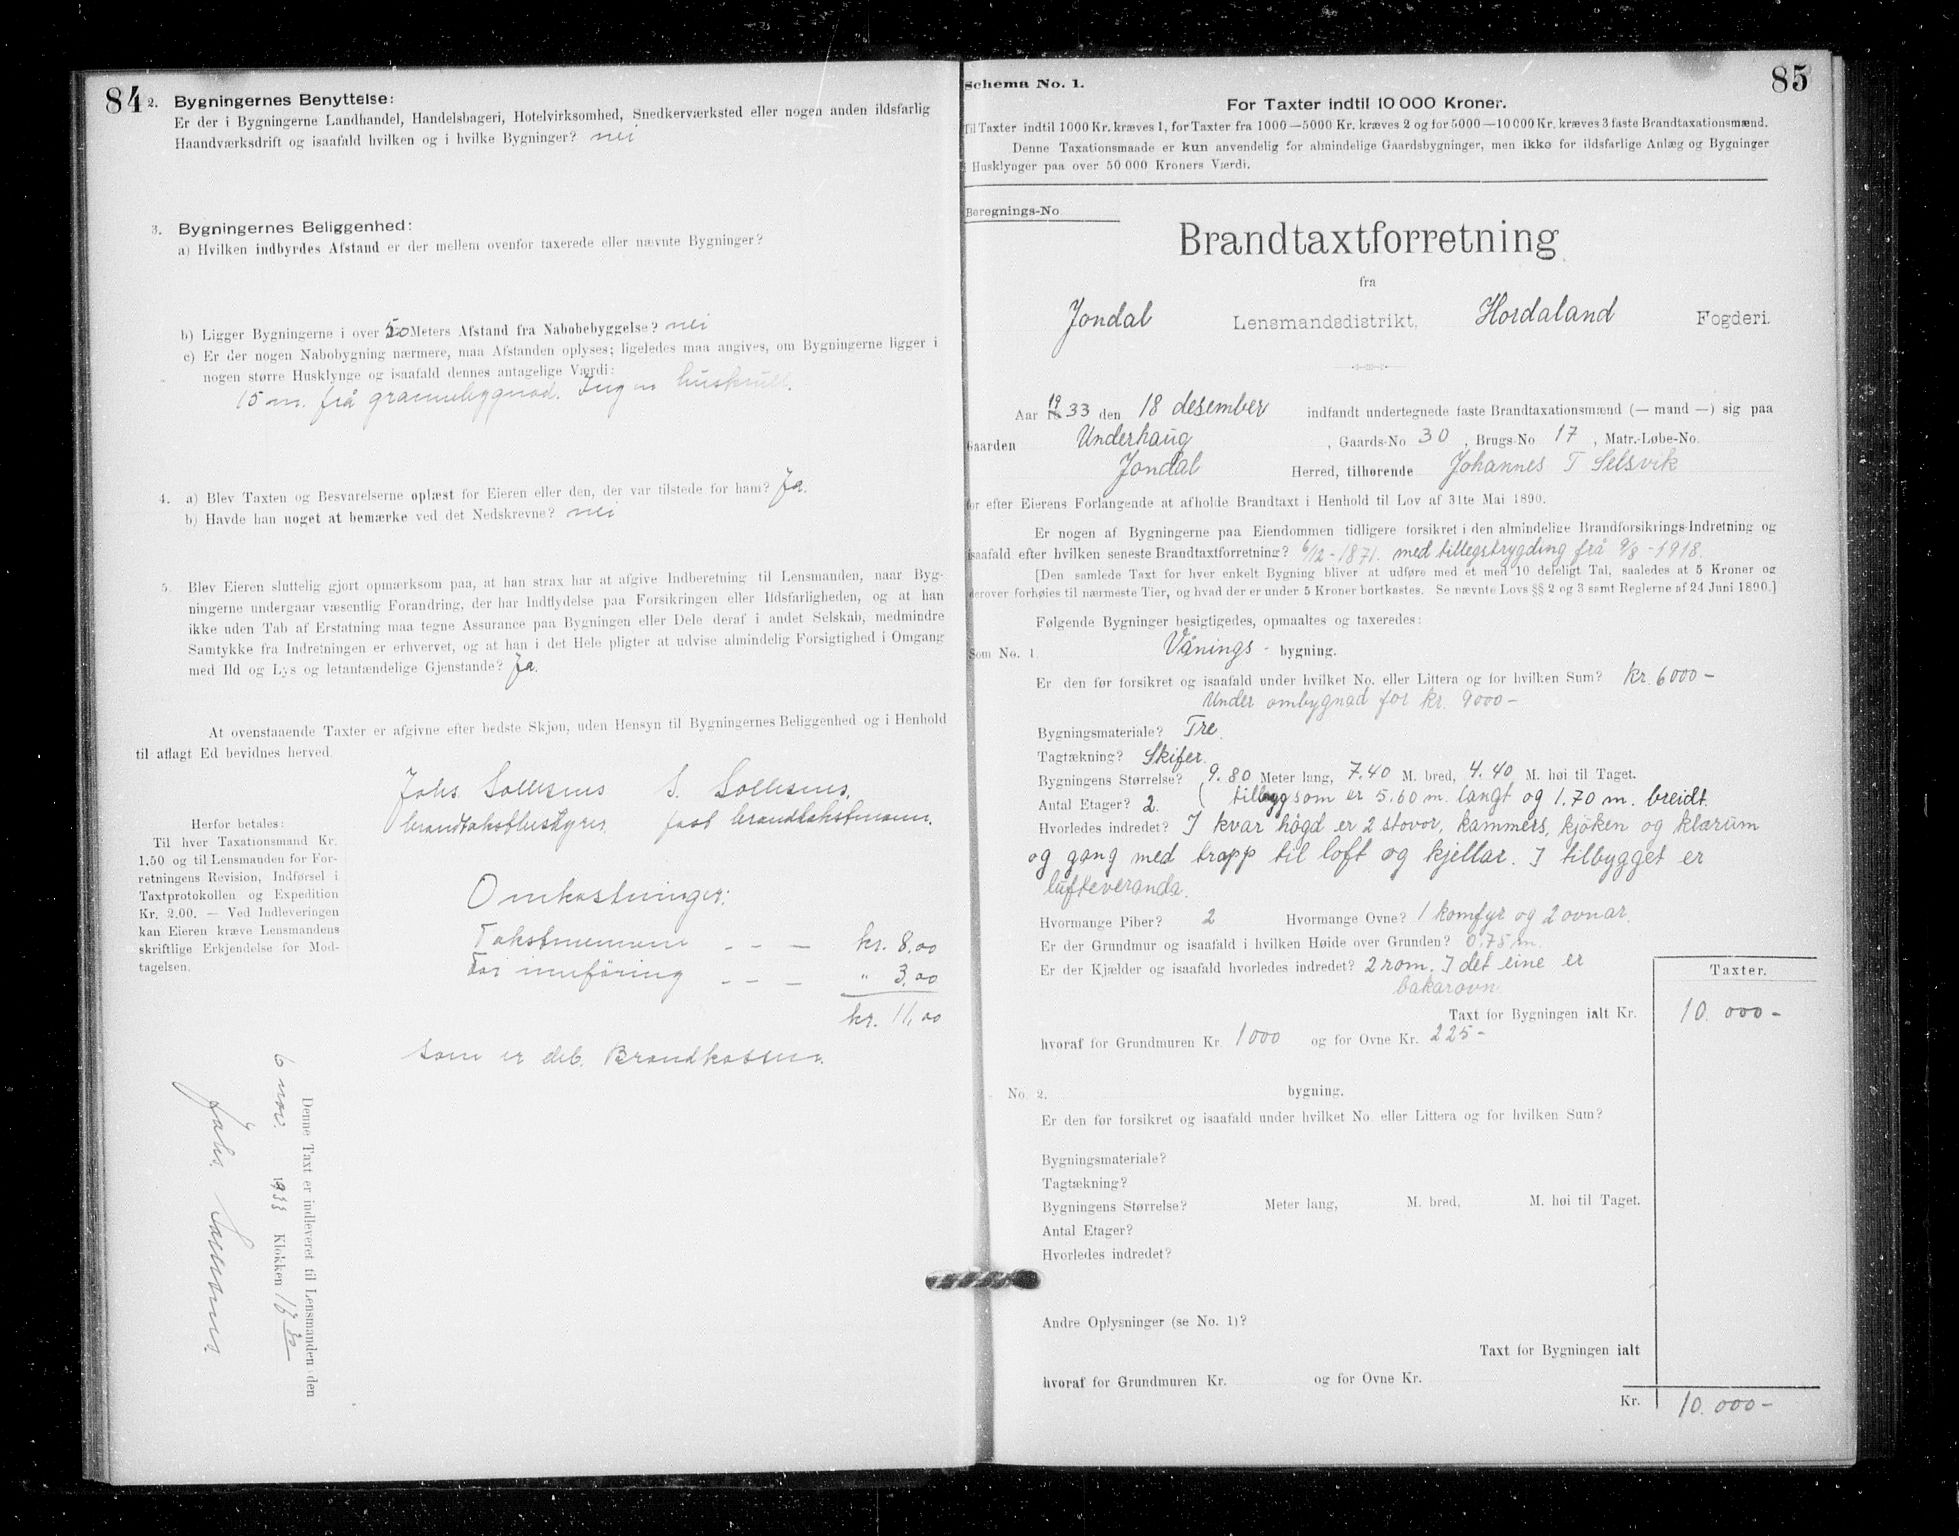 84
2. Bygningernes Benyttelse:
Er der i Bygningerne Landhandel, Handelsbageri, Hotelvirksomhed, Snedkerværksted eller nogen anden ildsfarlig
Haandværksdrift og isaafald hvilken og i hvilke Bygninger? nei
3. Bygningernes Beliggenhed:
a) Hvilken indbyrdes Afstand er der mellem ovenfor taxerede eller nævnte Bygninger?
b) Ligger Bygningerne i over 50 Meters Afstand fra Nabobebyggelse? nei
c) Er der nogen Nabobygning nærmere, maa Afstanden oplyses; ligeledes maa angives, om Bygningerne ligger i
nogen større Husklynge og isaafald dennes antagelige Værdi:
15 m. frå grannebygnad. Ingen huskrull.
4. a) Blev Taxten og Besvarelserne oplæst for Eieren eller den, der var tilstede for ham? Ja.
b) Havde han noget at bemærke ved det Nedskrevne? nei
5. Blev Eieren sluttelig gjort opmærksom paa, at han strax har at afgive Indberetning til Lensmanden, naar Byg-
ningerne undergaar væsentlig Forandring, der har Indflydelse paa Forsikringen eller Ildsfarligheden, og at han
ikke uden Tab af Erstatning maa tegne Assurance paa Bygningen eller Dele deraf i andet Selskab, medmindre
Samtykke fra Indretningen er erhvervet, og at han i det Hele pligter at udvise almindelig Forsigtighed i Omgang
med Ild og Lys og letantændelige Gjenstande? Ja.
At ovenstaaende Taxter er afgivne efter bedste Skjøn, uden Hensyn til Bygningernes Beliggenhed og i Henhold
til aflagt Ed bevidnes herved.
Johs. Sollesnes S. Sollesnes.
brandtakstbestyrer fast brandtakstmann.
Herfor betales:
Til hver Taxationsmand Kr.
1.50 og til Lensmanden for For-
retningens Revision, Indførsel i
Taxtprotokollen og Expedition
Kr. 2.00. — Ved Indleveringen
kan Eieren kræve Lensmandens
skriftlige Erkjendelse for Mod-
tagelsen.
Omkostninger:
Takstmennene - - - kr. 8,00
For innføring - - - " 3,00
kr. 11,00
som er deb. Brandkassen.
Denne Taxt er indleveret til Lensmanden den
6 nov. 1933 Klokken 17 30
Johs. Sollesnes
85
Schema No. 1.
For Taxter indtil 10 000 Kroner.
Til Taxter indtil 1000 Kr. kræves 1, for Taxter fra 1000—5000 Kr. kræves 2 og for 5000—10 000 Kr. kræves 3 faste Brandtaxationsmænd.
Denne Taxationsmaade er kun anvendelig for almindelige Gaardsbygninger, men ikke for ildsfarlige Anlæg og Bygninger
i Husklynger paa over 50 000 Kroners Værdi.
Beregnings-No
Brandtaxtforretning
fra
Jondal Lensmandsdistrikt, Hordaland Fogderi.
Aar 1933 den 18 desember indfandt undertegnede faste Brandtaxationsmænd (— mand —) sig paa
Gaarden Underhaug, Gaards-No 30, Brugs-No 17, Matr.-Løbe-No.
Jondal Herred, tilhørende Johannes T Selsvik
for efter Eierens Forlangende at afholde Brandtaxt i Henhold til Lov af 31te Mai 1890.
Er nogen af Bygningerne paa Eiendommen tidligere forsikret i den almindelige Brandforsikrings-Indretning og
isaafald efter hvilken seneste Brandtaxtforretning? 6/12-1871. med tillegstrygding frå 9/8-1918.
[Den samlede Taxt for hver enkelt Bygning bliver at udføre med et med 10 deleligt Tal, saaledes at 5 Kroner og
derover forhøies til nærmeste Tier, og hvad der er under 5 Kroner bortkastes. Se nævnte Lovs §§ 2 og 3 samt Reglerne af 24 Juni 1890.]
Følgende Bygninger besigtigedes, opmaaltes og taxeredes:
Som No. 1. Vånings - bygning.
Er den før forsikret og isaafald under hvilket No. eller Littera og for hvilken Sum? kr. 6000 -
Under ombygnad for kr. 9000 -
Bygningsmateriale? Tre.
Tagtækning? Skifer.
Bygningens Størrelse? 9.80 Meter lang, 7.40 M. bred, 4.40 M. høi til Taget.
Antal Etager? 2. tilbygg som er 5.60 m. langt og 1.70 m. breidt.
Hvorledes indredet? I kvar høgd er 2 stovor, kammers, kjöken og klærum
og gang med trapp til loft og kjellar. I tilbygget er
lufteveranda.
Hvormange Piber? 2 Hvormange Ovne? 1 komfyr og 2 ovnar.
Er der Grundmur og isaafald i hvilken Høide over Grunden? 0.75 m.
Er der Kjælder og isaafald hvorledes indredet? 2 rom. I det eine er
bakarovn.
Taxter.
Taxt for Bygningen ialt Kr. 10.000 -
hvoraf for Grundmuren Kr. 1000 og for Ovne Kr. 225 -
No. 2. bygning.
Er den før forsikret og isaafald under hvilket No. eller Littera og for hvilken Sum?
Bygningsmateriale?
Tagtækning?
Bygningens Størrelse? Meter lang, M. bred, M. høi til Taget.
Antal Etager?
Hvorledes indredet?
Andre Oplysninger (se No. 1)?
Taxt for Bygningen ialt
hvoraf for Grundmuren Kr. og for Ovne Kr.
Kr. 10.000 -